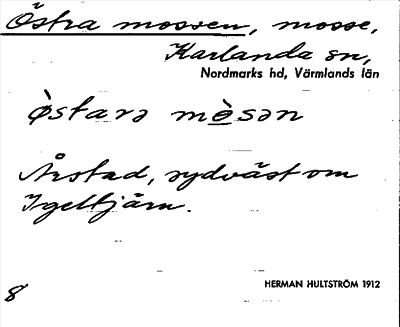 Östra mossen, mosse,
Karlanda sn,
Nordmarks hd, Värmlands län
ø̀starə mòsən
Årstad, sydväst om
Igeltjärn.
HERMAN HULTSTRÖM 1912
8